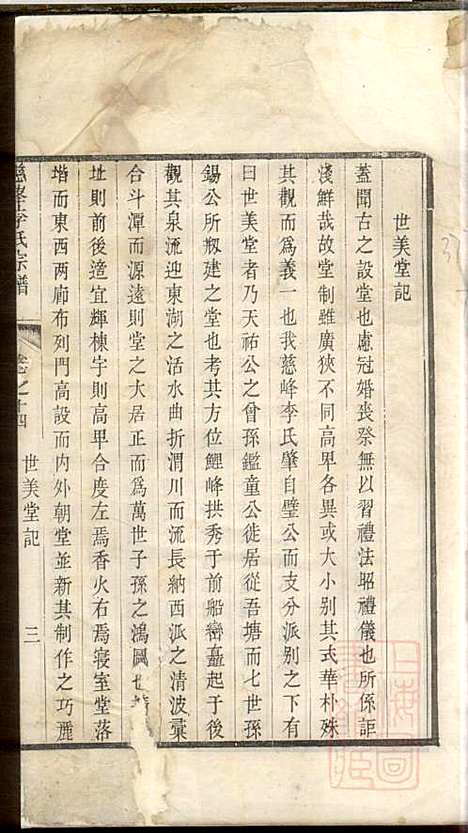 世美堂記
蓋聞古之設堂也慮冠婚喪祭無以習禮法昭禮儀也所係詎
淺鮮哉故堂制雖廣狹不同高卑各異或大小別其式華朴殊
其觀而爲義一也我慈峰李氏肇自璧公而支分派別之下有
曰世美堂者乃天祐公之曾孫鑑童公徙居從吾塘而七世孫
錫公所剏建之堂也考其方位鯉峰拱秀于前船巒矗起于後
觀其泉流迎東湖之活水曲折渭川而流長納西派之清波彙
合斗潭而源遠則堂之大居正而爲萬世子孫之鴻圖也
址則前後適宜輝棟宇則高卑合度左焉香火右焉寢室堂落
堦而東西兩廊布列門高設而内外朝堂並新其制作之巧麗
慈峰李氏宗譜
卷之十四
世美堂記
三
上海圖書館藏